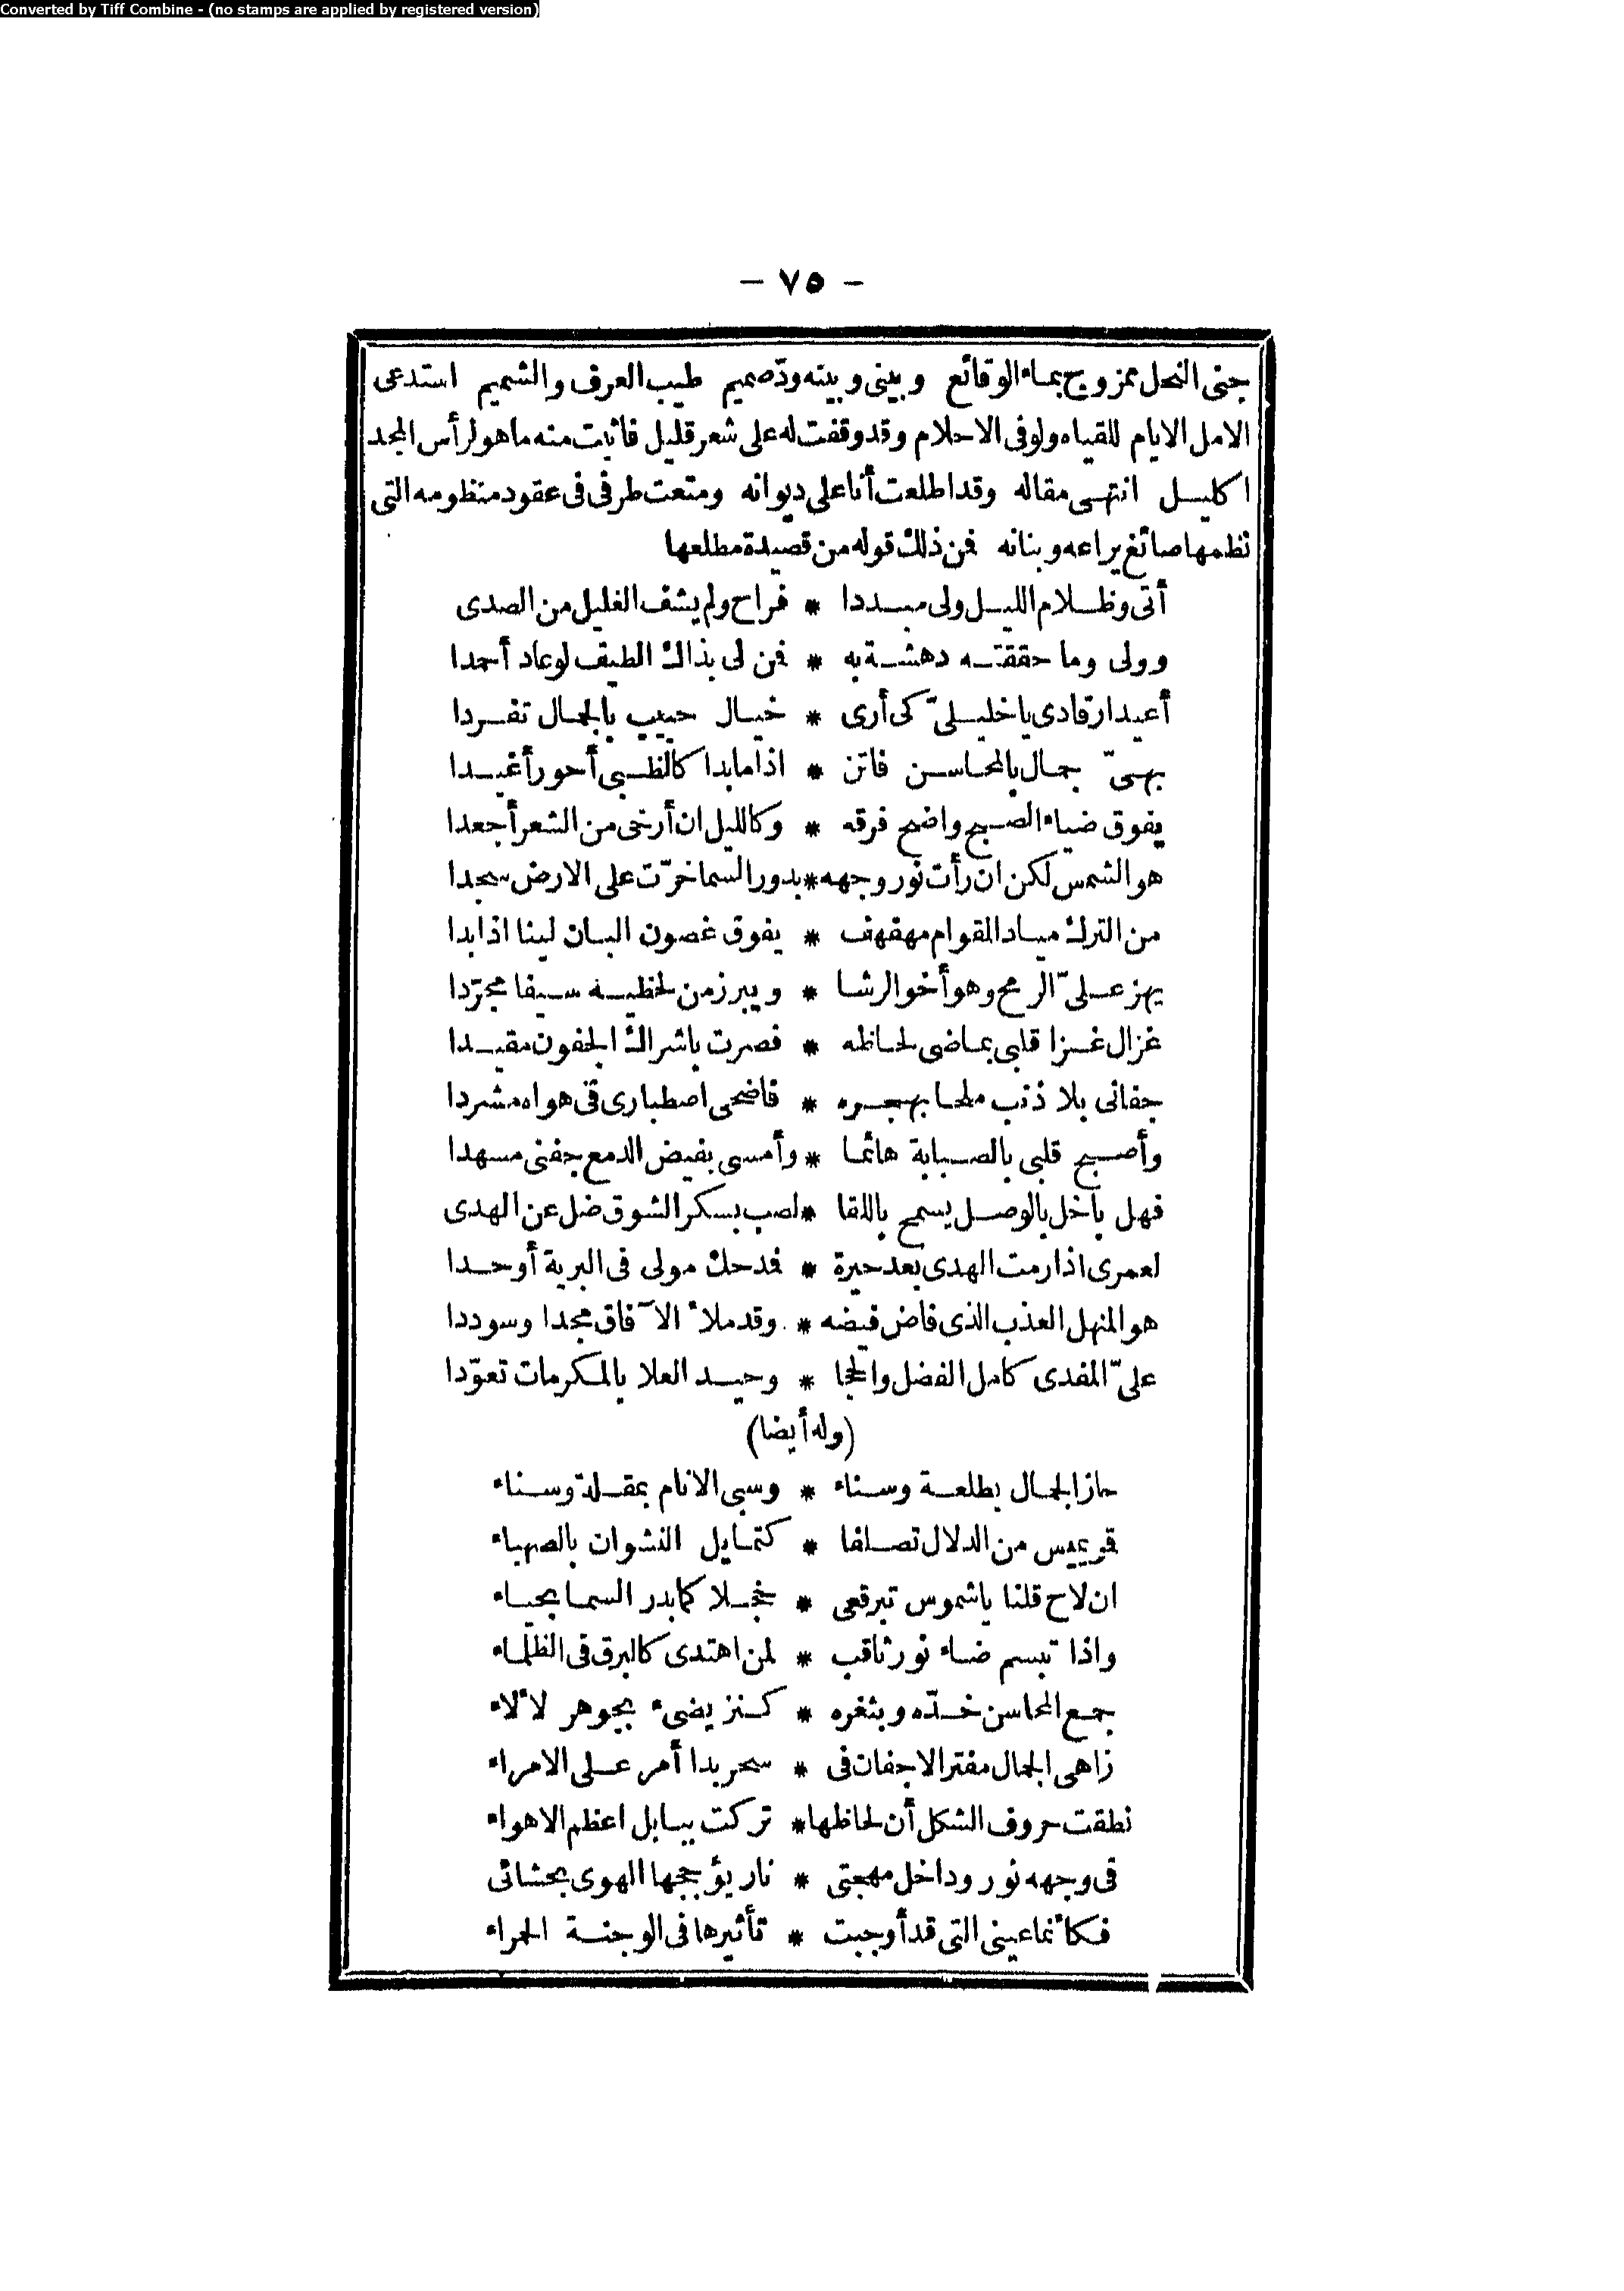 Converted by Tiff Combine - (no stamps are applied by registered version)
- ٧٥ -
جنى النحل ممزوج بماء الوقائع وبينى وبينه ودّ صميم طيب العرف والشميم استدعى
الامل الايام للقياه ولو فى الاحلام وقد وقفت له على شعر قليل فاثبت منه ما هو لرأس المجد
اكليل انتهى مقاله وقد اطلعت أنا على ديوانه ومتعت طرفى فى عقود منظومه التى
نظمها صائغ يراعه وبنانه فمن ذلك قوله من قصيدة مطلعها
أتى وظلام الليل ولى مبددا * فراح ولم يشف الغليل من الصدى
وولى وما حققته دهشة به * فمن لى بذاك الطيف لو عاد أحمدا
أعيدا رقادى يا خليلىّ كى أرى * خيال حبيب بالجمال تفردا
بهىّ جمال بالمحاسن فاتن * اذا ما بدا كالظبى أحور أغيدا
يفوق ضياء الصبح واضح فرقه * وكالليل ان أرخى من الشعر أجعدا
هو الشمس لكن ان رأت نور وجهه * بدور السما خرّت على الارض سجدا
من الترك مياد القوام مهفهف * يفوق غصون البان لينا اذا بدا
يهز علىّ الرمح وهو أخو الرشا * ويبرز من لحظيه سيفا مجرّدا
غزال غزا قلبى بماضى لحاظه * فصرت باشراك الجفون مقيدا
جفانى بلا ذنب ملحا بهجره * فاضحى اصطبارى فى هواه مشردا
وأصبح قلبى بالصبابة هائما * وأمسى بفيض الدمع جفنى مسهدا
فهل ياخل بالوصل يسمح باللقا * لصب بسكر الشوق ضل عن الهدى
لعمرى اذا رمت الهدى بعد حيرة * فدحك مولى فى البرية أوحدا
هو المنهل العذب الذى فاض فيضه * وقد ملأ الآفاق مجدا وسوددا
علىّ المفدى كامل الفضل والحجا * وحيد العلا بالمكرمات تعوّدا
(وله أيضا)
حاز الجمال بطلعة وسناء * وسبى الانام بمقلة وسناء
قمر يميس من الدلال تصلفا * كتمايل النشوان بالصهباء
ان لاح قلنا يا شموس تبرقعى * خجلا كما بدر السما بحياء
واذا تبسم ضاء نور ثاقب * لمن اهتدى كالبرق فى الظلماء
جمع المحاسن خدّه وبثغره * كنز يضىء بجوهر لألاء
زاهى الجمال مفتر الاجفان فى * سحر بدا أمر على الامراء
نطقت حروف الشكل أن لحاظها * تركت ببابل اعظم الاهواء
فى وجهه نور وداخل مهجتى * نار يؤججها الهوى بحشائى
فكأنما عينى التى قد أوجبت * تأثيرها فى الوجنة الحمراء